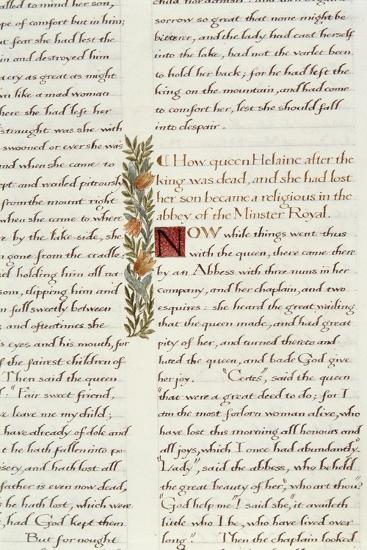 alled to mind her son,
ope of comfort but in him;
at fear she had lest the
in and destroyed him
a cry as great as might
wn like a mad woman
here she had left her
straught was she with
swooned or ever she was
And when she came to
ept and wailed piteously
from the mount right
when she came to where
by the lake-side, she
gone from the cradle,
d holding him all na
som, clipping him and
full sweetly between
and oftentimes she
s eyes and his mouth, for
f the fairest children of
Then said the queen
"Fair sweet friend,
leave me my child;
have already of dole and
t he hath fallen into po
isery, and hath lost all
father is even now dead,
he hath lost, which were
, had God kept them.
But for nought
child nor damsel: and
sorrow so great that none might be
bitterer, and the lady had cast herself
into the lake, had not the varlet been
to hold her back; for he had left the
king on the mountain, and had come
to comfort her, lest she should fall
into despair.
How queen Helaine after the
king was dead, and she had lost
her son became a religious in the
abbey of the Minster Royal.
NOW while things went thus
with the queen, there came there
by an Abbess with three nuns in her
company, and her chaplain, and two
esquires: she heard the great wailing
that the queen made, and had great
pity of her, and turned thereto and
luted the queen, and bade God give
her joy. "Certes", said the queen
"that were a great deed to do; for I
am the most forlorn woman alive, who
have lost this morning all honours and
all joys, which I once had abundantly."
"Lady", said the abbess, who beheld
the great beauty of her, who art thou?"
"God help me! said she, it availeth
little who I be, who have lived over
long." Then the chaplain looked